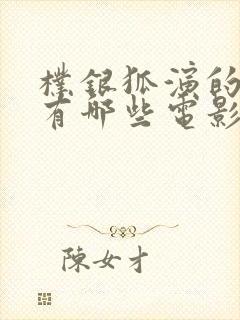 樸銀狐演的
有哪些電影
陳女才